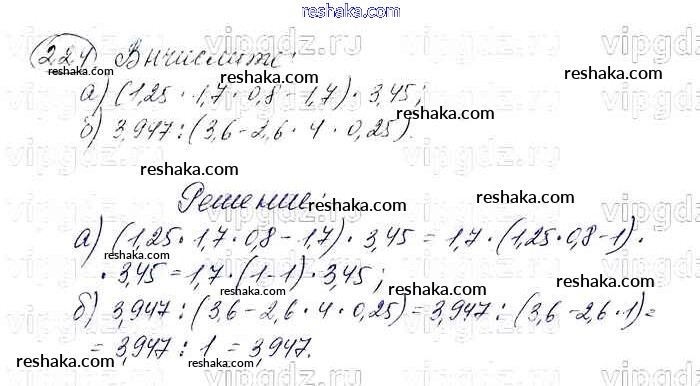 reshaka.com
224) Вычислите:
reshaka.com reshaka.com reshaka.com
а) (1,25 · 1,7 · 0,8 - 1,7) · 3,45;
б) 3,947 : (3,6 - 2,6 · 4 · 0,25).
reshaka.com
reshaka.com reshaka.com
Решение:
reshaka.com
а) (1,25 · 1,7 · 0,8 - 1,7) · 3,45 = 1,7 · (1,25 · 0,8 - 1) ·
reshaka.com
· 3,45 = 1,7 · (1 - 1) · 3,45;
reshaka.com reshaka.com reshaka.com
б) 3,947 : (3,6 - 2,6 · 4 · 0,25) = 3,947 : (3,6 - 2,6 · 1) =
= 3,947 : 1 = 3,947.
reshaka.com reshaka.com
reshaka.com